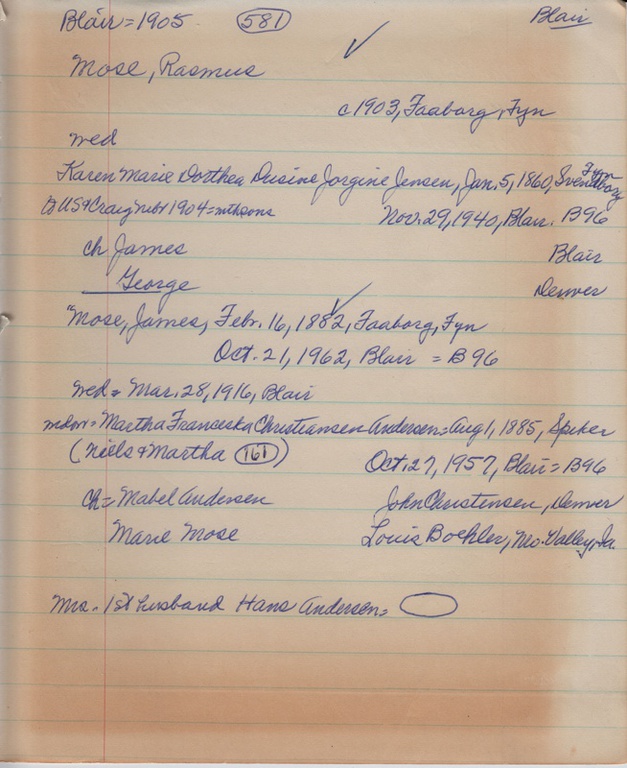 Blair = 1905 581 Blair
Mose, Rasmus
c1903, Faaborg, Fyn
wed
Karen Marie Dorthea Dusine Jorgine Jensen, Jan. 5, 1860, Svendborg Fyn
to US & Craig Nebr 1904 = mthsons Nov. 29, 1940, Blair. B96
ch James Blair
George Denver
Mose, James, Febr. 16, 1882, Faaborg, Fyn
Oct. 21, 1962, Blair = B96
wed = Mar. 28, 1916, Blair
wdow = Martha Franceska Christiansen Andersen = Aug 1, 1885, Spiker
(Niels & Martha 161) Oct. 27, 1957, Blair = B96
ch = Mabel Andersen John Christensen, Denver
Marie Mose Louis Boehler, Mo. Valley, Ia.
Mrs. 1st husband Hans Andersen =